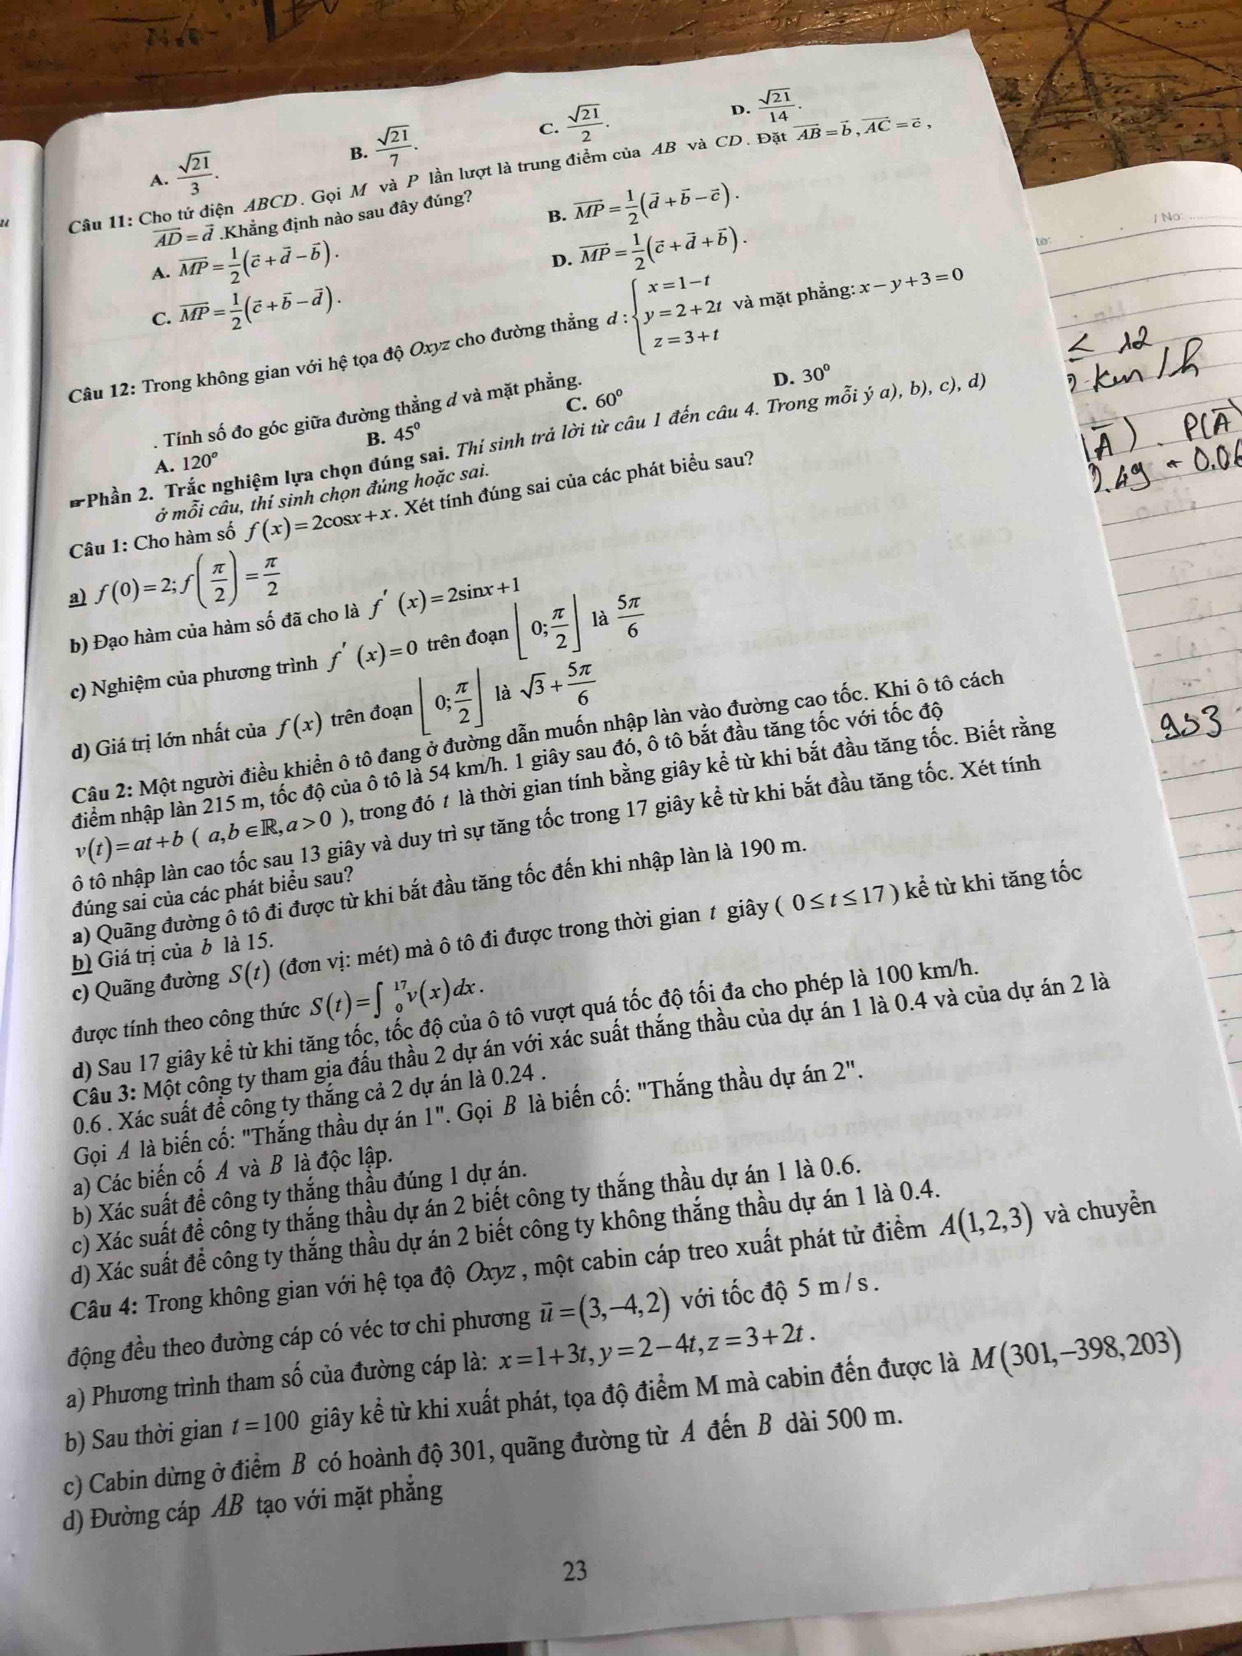 A. √21/3.
B. √21/7.
C. √21/2.
D. √21/14.
Câu 11: Cho tứ diện ABCD. Gọi M và P lần lượt là trung điểm của AB và CD. Đặt AB⃗ = b⃗, AC⃗ = c⃗,
AD⃗ = d⃗ .Khẳng định nào sau đây đúng?
A. MP⃗ = 1/2(c⃗ + d⃗ − b⃗).
B. MP⃗ = 1/2(d⃗ + b⃗ − c⃗).
C. MP⃗ = 1/2(c⃗ + b⃗ − d⃗).
D. MP⃗ = 1/2(c⃗ + d⃗ + b⃗).
Câu 12: Trong không gian với hệ tọa độ Oxyz cho đường thẳng d : { x = 1 − t y = 2 + 2t z = 3 + t và mặt phẳng: x − y + 3 = 0
. Tính số đo góc giữa đường thẳng d và mặt phẳng.
A. 120°
B. 45°
C. 60°
D. 30°
☞Phần 2. Trắc nghiệm lựa chọn đúng sai. Thí sinh trả lời từ câu 1 đến câu 4. Trong mỗi ý a), b), c), d)
ở mỗi câu, thí sinh chọn đúng hoặc sai.
Câu 1: Cho hàm số f(x) = 2cosx + x. Xét tính đúng sai của các phát biểu sau?
a) f(0) = 2; f(π/2) = π/2
b) Đạo hàm của hàm số đã cho là f′(x) = 2sinx + 1
c) Nghiệm của phương trình f′(x) = 0 trên đoạn [0; π/2] là 5π/6
d) Giá trị lớn nhất của f(x) trên đoạn [0; π/2] là √3 + 5π/6
Câu 2: Một người điều khiển ô tô đang ở đường dẫn muốn nhập làn vào đường cao tốc. Khi ô tô cách
điểm nhập làn 215 m, tốc độ của ô tô là 54 km/h. 1 giây sau đó, ô tô bắt đầu tăng tốc với tốc độ
v(t) = at + b ( a,b ∈ ℝ, a > 0 ), trong đó t là thời gian tính bằng giây kể từ khi bắt đầu tăng tốc. Biết rằng
ô tô nhập làn cao tốc sau 13 giây và duy trì sự tăng tốc trong 17 giây kể từ khi bắt đầu tăng tốc. Xét tính
đúng sai của các phát biểu sau?
a) Quãng đường ô tô đi được từ khi bắt đầu tăng tốc đến khi nhập làn là 190 m.
b) Giá trị của b là 15.
c) Quãng đường S(t) (đơn vị: mét) mà ô tô đi được trong thời gian t giây ( 0 ≤ t ≤ 17 ) kể từ khi tăng tốc
được tính theo công thức S(t) = ∫₀¹⁷ v(x)dx.
d) Sau 17 giây kể từ khi tăng tốc, tốc độ của ô tô vượt quá tốc độ tối đa cho phép là 100 km/h.
Câu 3: Một công ty tham gia đấu thầu 2 dự án với xác suất thắng thầu của dự án 1 là 0.4 và của dự án 2 là
0.6 . Xác suất để công ty thắng cả 2 dự án là 0.24 .
Gọi A là biến cố: "Thắng thầu dự án 1". Gọi B là biến cố: "Thắng thầu dự án 2".
a) Các biến cố A và B là độc lập.
b) Xác suất để công ty thắng thầu đúng 1 dự án.
c) Xác suất để công ty thắng thầu dự án 2 biết công ty thắng thầu dự án 1 là 0.6.
d) Xác suất để công ty thắng thầu dự án 2 biết công ty không thắng thầu dự án 1 là 0.4.
Câu 4: Trong không gian với hệ tọa độ Oxyz , một cabin cáp treo xuất phát từ điểm A(1,2,3) và chuyển
động đều theo đường cáp có véc tơ chỉ phương u⃗ = (3,−4,2) với tốc độ 5 m / s .
a) Phương trình tham số của đường cáp là: x = 1 + 3t, y = 2 − 4t, z = 3 + 2t .
b) Sau thời gian t = 100 giây kể từ khi xuất phát, tọa độ điểm M mà cabin đến được là M(301,−398,203)
c) Cabin dừng ở điểm B có hoành độ 301, quãng đường từ A đến B dài 500 m.
d) Đường cáp AB tạo với mặt phẳng
23
/ No:
≤ 12
km/h
P(A̅)
953